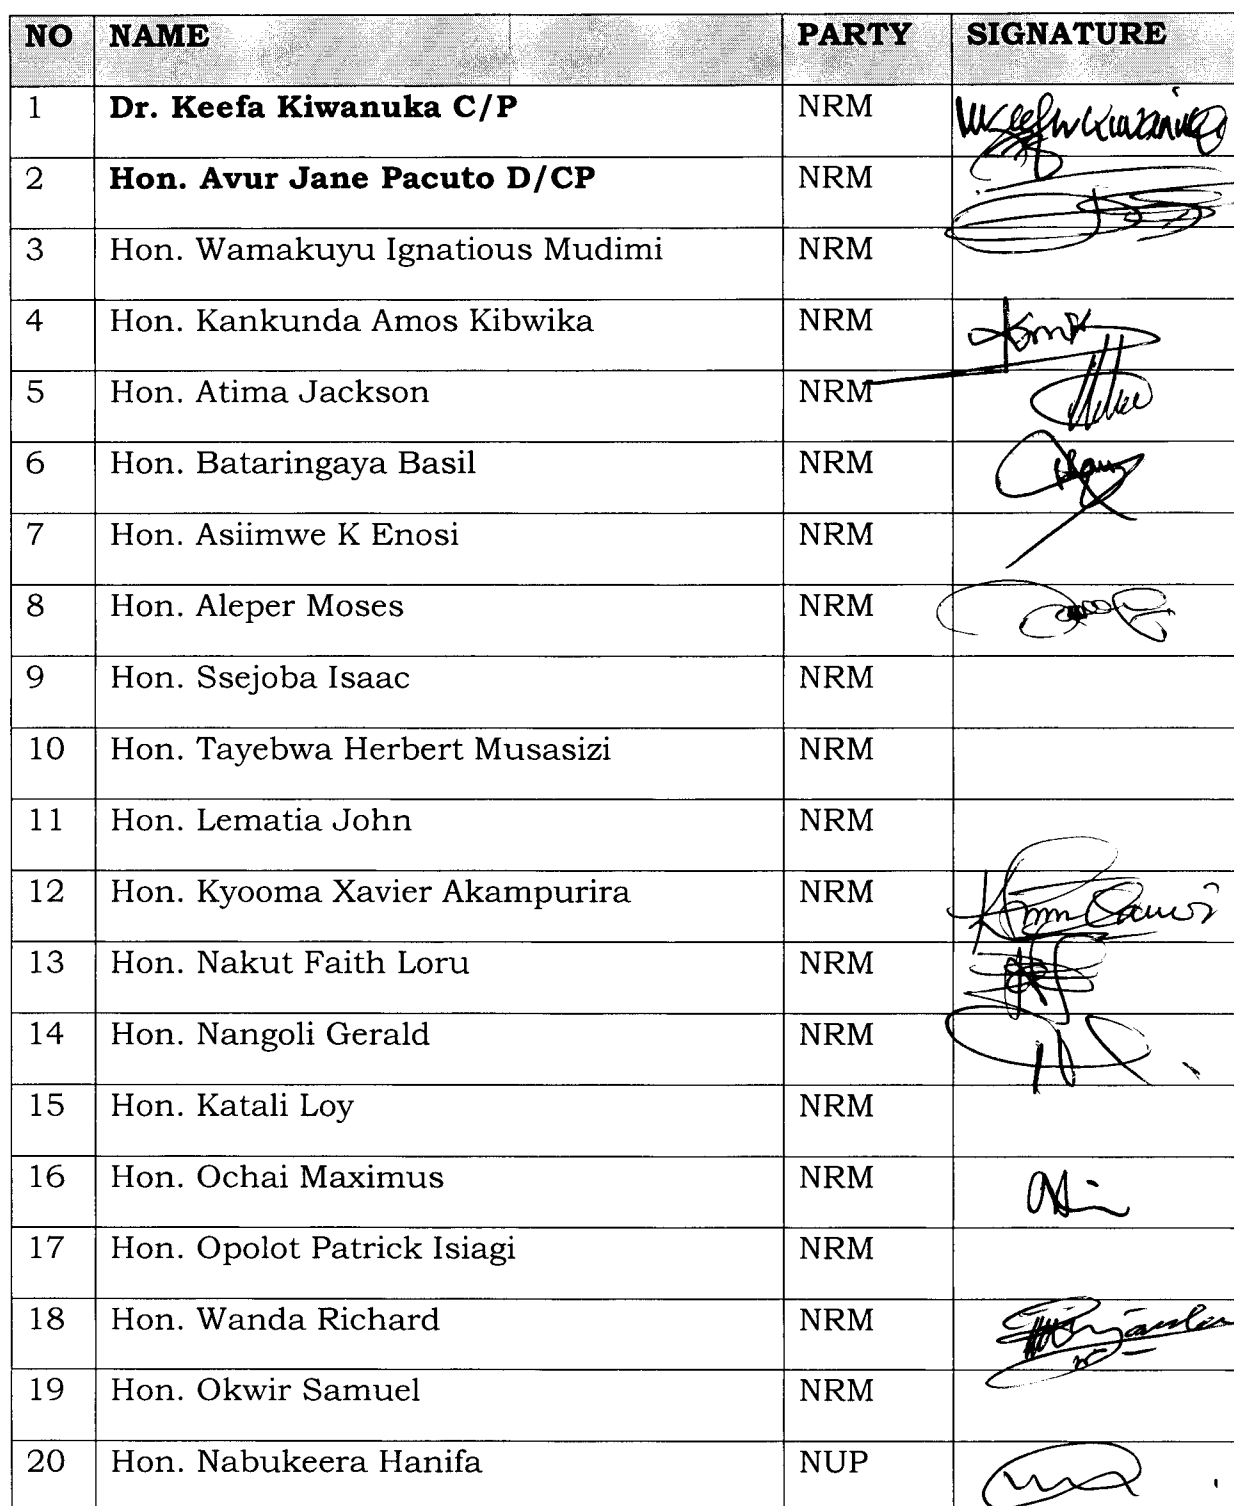 NO NAME PARTY SIGNATURE
1 Dr. Keefa Kiwanuka C/P NRM
2 Hon. Avur Jane Pacuto D/CP NRM
3 Hon. Wamakuyu Ignatious Mudimi NRM
4 Hon. Kankunda Amos Kibwika NRM
5 Hon. Atima Jackson NRM
6 Hon. Bataringaya Basil NRM
7 Hon. Asiimwe K Enosi NRM
8 Hon. Aleper Moses NRM
9 Hon. Ssejoba Isaac NRM
10 Hon. Tayebwa Herbert Musasizi NRM
11 Hon. Lematia John NRM
12 Hon. Kyooma Xavier Akampurira NRM
13 Hon. Nakut Faith Loru NRM
14 Hon. Nangoli Gerald NRM
15 Hon. Katali Loy NRM
16 Hon. Ochai Maximus NRM
17 Hon. Opolot Patrick Isiagi NRM
18 Hon. Wanda Richard NRM
19 Hon. Okwir Samuel NRM
20 Hon. Nabukeera Hanifa NUP